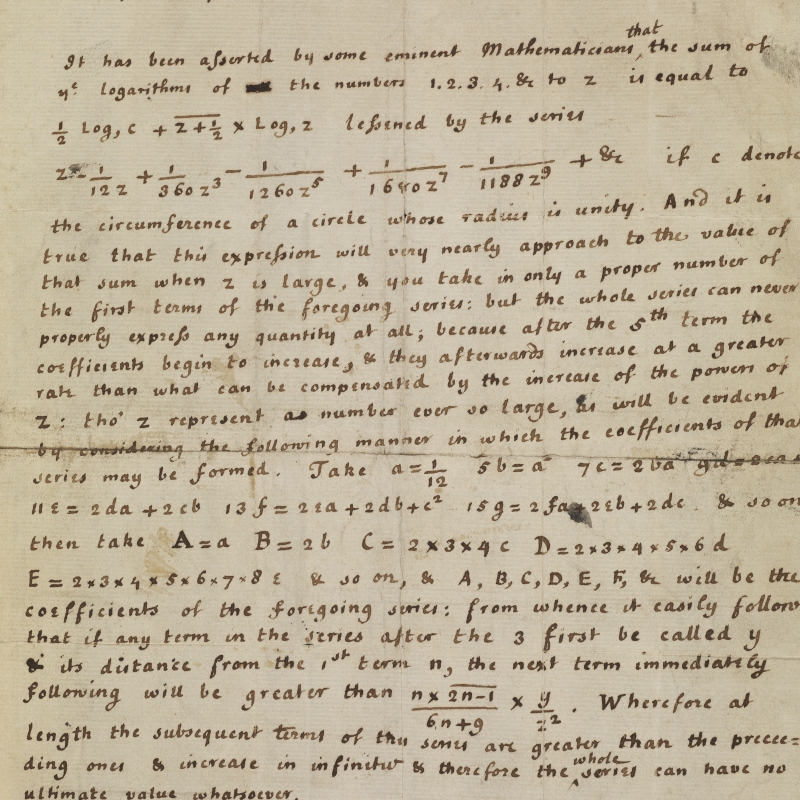 It has been asserted by some eminent Mathematicians that the sum of
yᵉ logarithms of the numbers 1.2.3.4.&c to z is equal to
½ Log, c + z+½ × Log, z lessened by the series
z - 1/12z + 1/360z³ - 1/1260z⁵ + 1/1680z⁷ - 1/1188z⁹ + &c if c denote
the circumference of a circle whose radius is unity. And it is
true that this expression will very nearly approach to the value of
that sum when z is large, & you take in only a proper number of
the first terms of the foregoing series: but the whole series can never
properly express any quantity at all; because after the 5th term the
coefficients begin to increase, & they afterwards increase at a greater
rate than what can be compensated by the increase of the powers of
z: tho' z represent a number ever so large, as will be evident
by considering the following manner in which the coefficients of that
series may be formed. Take a=1/12 5b=a² 7c=2ba 9d=2ca
11ε = 2da + 2cb 13f = 2εa + 2db + c² 15g = 2fa + 2εb + 2dc & so on
then take A=a B=2b C=2×3×4c D=2×3×4×5×6d
E=2×3×4×5×6×7×8ε & so on, & A, B, C, D, E, F, &c will be the
coefficients of the foregoing series: from whence it easily follow
that if any term in the series after the 3 first be called y
& its distance from the 1st term n, the next term immediately
following will be greater than n×2n-1/6n+9 × y/z². Wherefore at
length the subsequent terms of this series are greater than the precee=
ding ones & increase in infinitum & therefore the whole series can have no
ultimate value whatsoever.